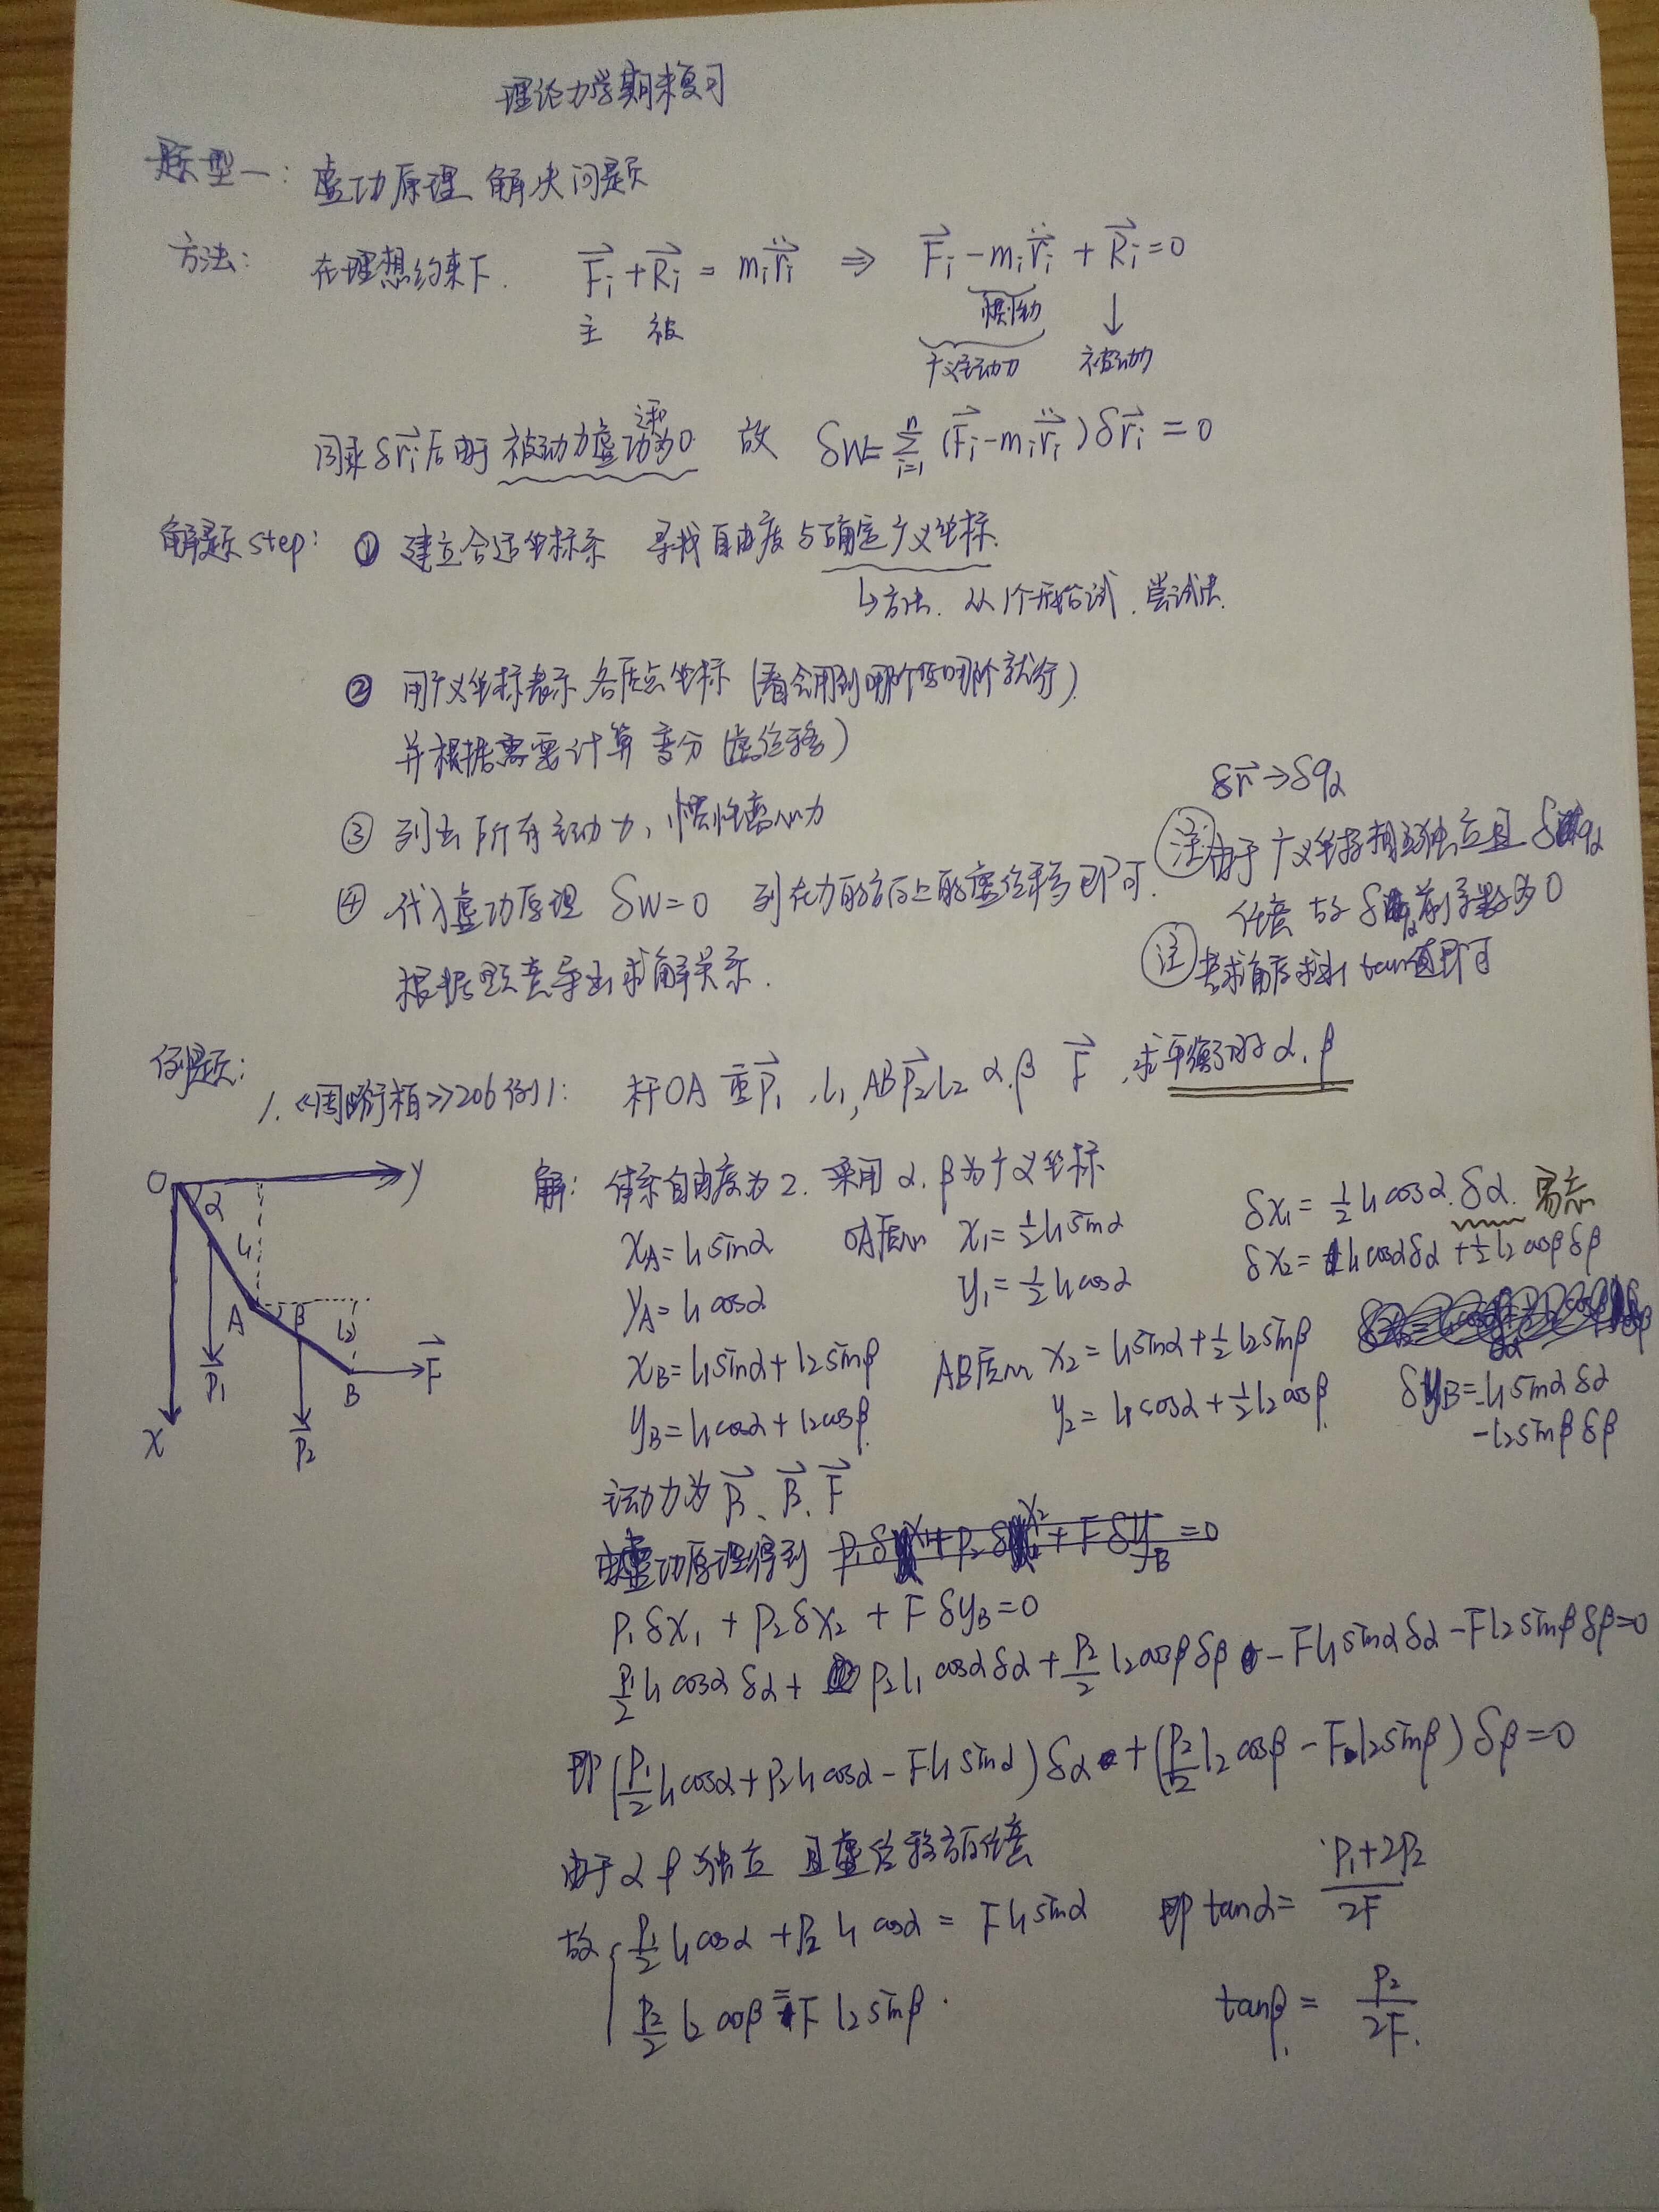 理论力学期末复习
题型一: 虚功原理 解决问题
方法: 在理想约束下. F⃗i + R⃗i = mi r̈⃗i ⇒ F⃗i - mi r̈⃗i + R⃗i = 0
主 被 惯性力 ↓
广义主动力 被动力
同乘 δr⃗i 后 由于 被动力虚功之和为0 故 δW = Σ(i=1→n) (F⃗i - mi r̈⃗i) δr⃗i = 0
解题step: ① 建立合适坐标系 寻找自由度与确定广义坐标.
↳ 方法. 从1个开始试. 尝试法.
② 用广义坐标表示 各质点坐标 (看会用到哪个写哪个就行)
并根据需要计算 变分 (虚位移)
③ 列出所有主动力、惯性离心力
④ 代入虚功原理 δW=0 列在力的方向上的虚位移即可.
根据题意导出求解关系.
δr⃗ → δqα
注 由于广义坐标相互独立且 δqα
任意 故 δqα 前系数为0
注 若求角度 求出 tan值即可
例题:
1. 《周衍柏》206 例1: 杆OA 重P⃗1 , l1, AB P⃗2 l2 α.β F⃗ , 求平衡时 α. β
O y
α
l1
A β l2
P⃗1 B F⃗
x P⃗2
解: 体系自由度为2. 采用 α. β 为广义坐标
xA = l1 sinα OA质心 x1 = ½ l1 sinα
yA = l1 cosα y1 = ½ l1 cosα
xB = l1 sinα + l2 sinβ AB质心 x2 = l1 sinα + ½ l2 sinβ
yB = l1 cosα + l2 cosβ. y2 = l1 cosα + ½ l2 cosβ.
δx1 = ½ l1 cosα. δα. 易忘
δx2 = l1 cosα δα + ½ l2 cosβ δβ
δyB = -l1 sinα δα
-l2 sinβ δβ
主动力为 P⃗1、P⃗2、F⃗
由虚功原理得到 P1 δx1 + P2 δx2 + F δyB = 0
P1 δx1 + P2 δx2 + F δyB = 0
P1/2 l1 cosα δα + P2 l1 cosα δα + P2/2 l2 cosβ δβ - F l1 sinα δα - F l2 sinβ δβ = 0
即 (P1/2 l1 cosα + P2 l1 cosα - F l1 sinα) δα + (P2/2 l2 cosβ - F l2 sinβ) δβ = 0
由于 α β 独立 且虚位移方向任意
故 { P1/2 l1 cosα + P2 l1 cosα = F l1 sinα 即 tanα = (P1+2P2)/2F
P2/2 l2 cosβ = F l2 sinβ. tanβ = P2/2F.